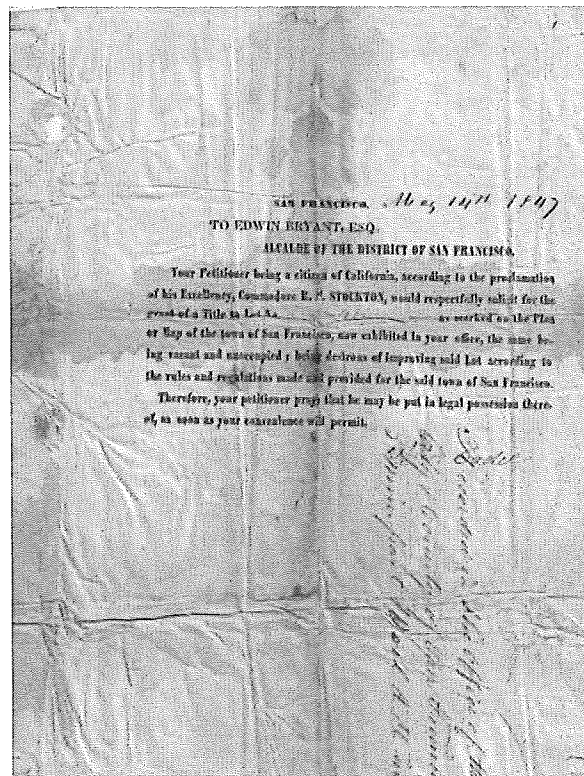 SAN FRANCISCO, May 14th 1847
TO EDWIN BRYANT, ESQ.
ALCALDE OF THE DISTRICT OF SAN FRANCISCO.
Your Petitioner being a citizen of California, according to the proclamation
of his Excellency, Commodore R. F. STOCKTON, would respectfully solicit for the
grant of a Title to Lot No. as marked on the Plan
or Map of the town of San Francisco, now exhibited in your office, the same be-
ing vacant and unoccupied; being desirous of improving said Lot according to
the rules and regulations made and provided for the said town of San Francisco.
Therefore, your petitioner prays that he may be put in legal possession there-
of, as soon as your convenience will permit.
in the Office of the
County of San